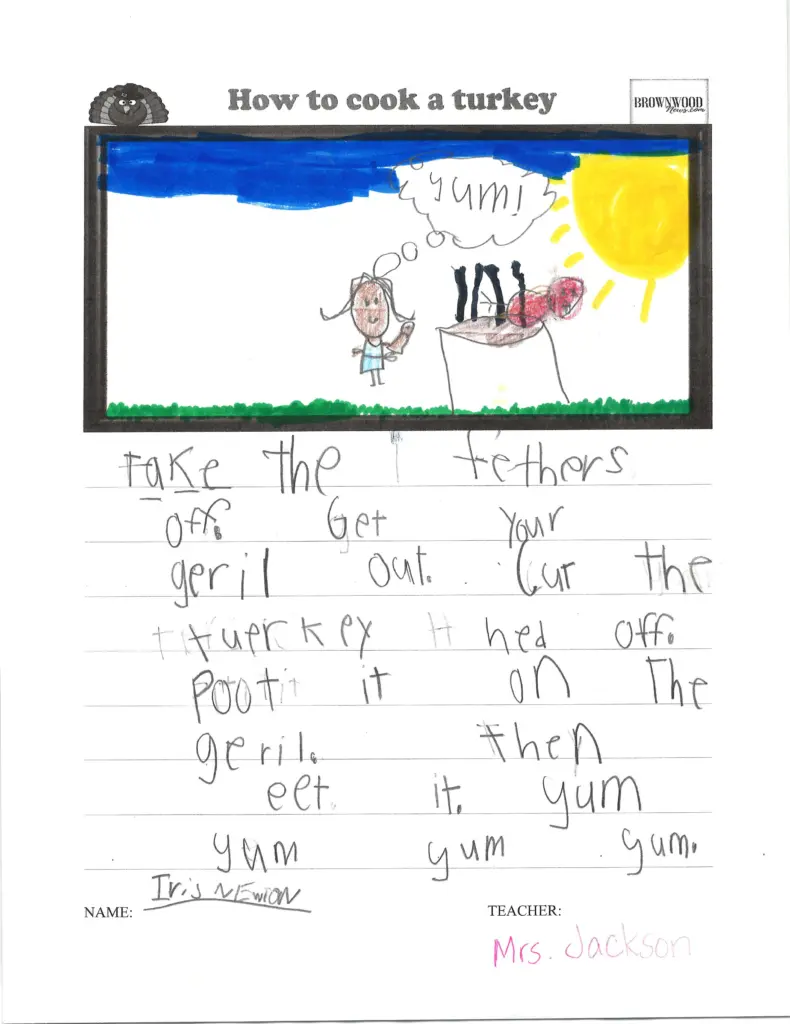 How to cook a turkey
BROWNWOOD
News.com
yum!
Take the fethers
off. Get your
geril out. Cut the
tuerkey hed off.
Poot it on The
geril. then
eet it. yum
yum yum yum.
NAME: Iris NEwtON
TEACHER:
Mrs. Jackson